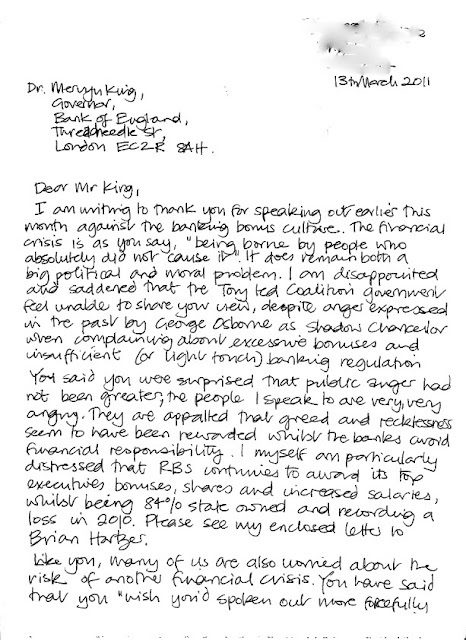 2
13th March 2011
Dr. Mervyn King,
Governor,
Bank of England,
Threadneedle St,
London EC2R 8AH.
Dear Mr King,
I am writing to thank you for speaking out earlier this
month against the banking bonus culture. The financial
crisis is as you say, "being borne by people who
absolutely did not cause it". It does remain both a
big political and moral problem. I am disappointed
and saddened that the Tory led Coalition government
feel unable to share your view, despite anger expressed
in the past by George Osborne as Shadow Chancellor
when complaining about excessive bonuses and
insufficient (or light touch) banking regulation
You said you were surprised that public anger had
not been greater; the people I speak to are very, very
angry. They are appalled that greed and recklessness
seem to have been rewarded whilst the banks avoid
financial responsibility. I myself am particularly
distressed that RBS continues to award its top
executives bonuses, shares and increased salaries,
whilst being 84% state owned and recording a
loss in 2010. Please see my enclosed letter to
Brian Hartzer.
Like you, many of us are also worried about the
risk of another financial crisis. You have said
that you "wish you'd spoken out more forcefully